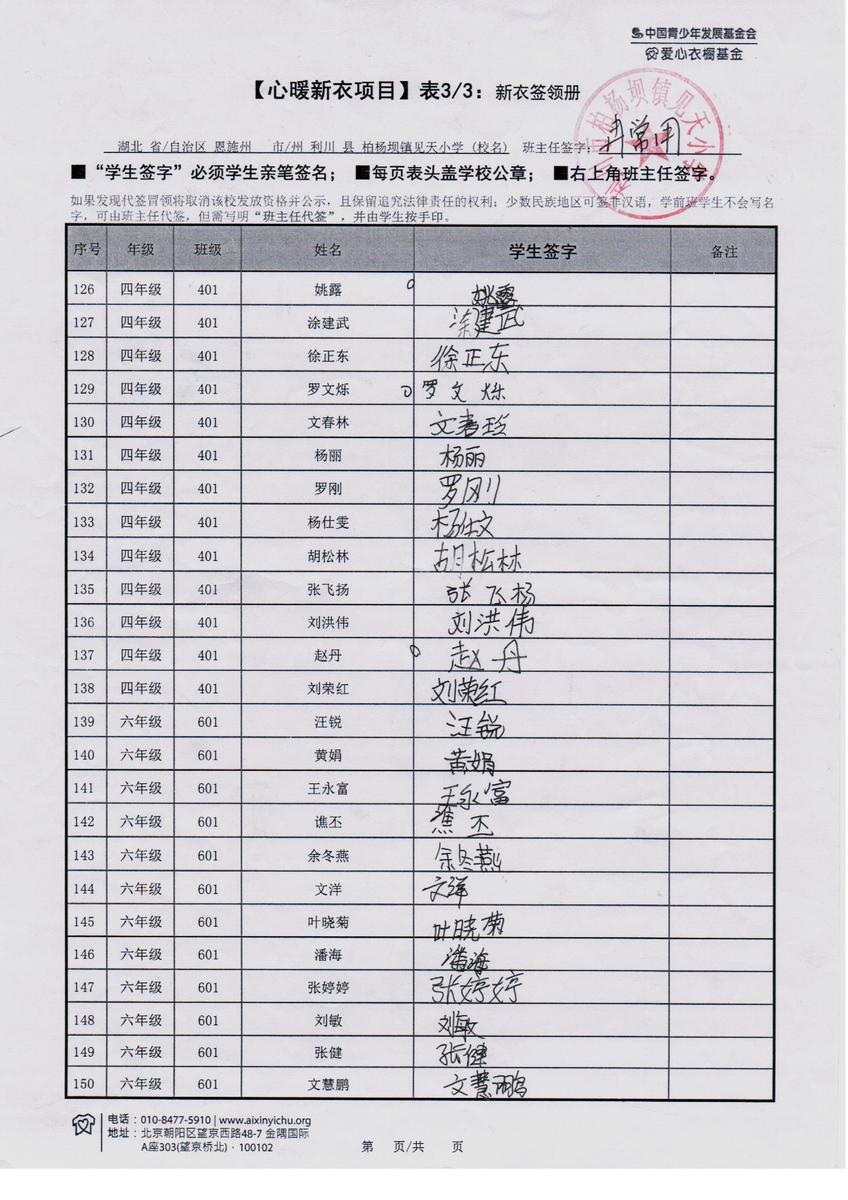 中国青少年发展基金会
爱心衣橱基金
【心暖新衣项目】表3/3：新衣签领册
湖北 省/自治区 恩施州 市/州 利川 县 柏杨坝镇见天小学 (校名) 班主任签字：
柏杨坝镇见天小学
■“学生签字”必须学生亲笔签名；■每页表头盖学校公章；■右上角班主任签字。
如果发现代签冒领将取消该校发放资格并公示，且保留追究法律责任的权利；少数民族地区可签非汉语，学前班学生不会写名
字，可由班主任代签，但需写明“班主任代签”，并由学生按手印。
序号 年级 班级 姓名 学生签字 备注
126 四年级 401 姚露 姚露
127 四年级 401 涂建武 涂建武
128 四年级 401 徐正东 徐正东
129 四年级 401 罗文烁 罗文烁
130 四年级 401 文春林 文春
131 四年级 401 杨丽 杨丽
132 四年级 401 罗刚 罗刚
133 四年级 401 杨仕雯 杨仕文
134 四年级 401 胡松林 胡松林
135 四年级 401 张飞扬 张飞杨
136 四年级 401 刘洪伟 刘洪伟
137 四年级 401 赵丹 赵丹
138 四年级 401 刘荣红 刘荣红
139 六年级 601 汪锐 汪锐
140 六年级 601 黄娟 黄娟
141 六年级 601 王永富 王永富
142 六年级 601 谯丕 谯丕
143 六年级 601 余冬燕 余冬燕
144 六年级 601 文洋 文洋
145 六年级 601 叶晓菊 叶晓菊
146 六年级 601 潘海 潘海
147 六年级 601 张婷婷 张婷婷
148 六年级 601 刘敏 刘敏
149 六年级 601 张健 张健
150 六年级 601 文慧鹏 文慧鹏
电话：010-8477-5910 | www.aixinyichu.org
地址：北京朝阳区望京西路48-7 金隅国际
A座303(望京桥北)·100102
第 页/共 页